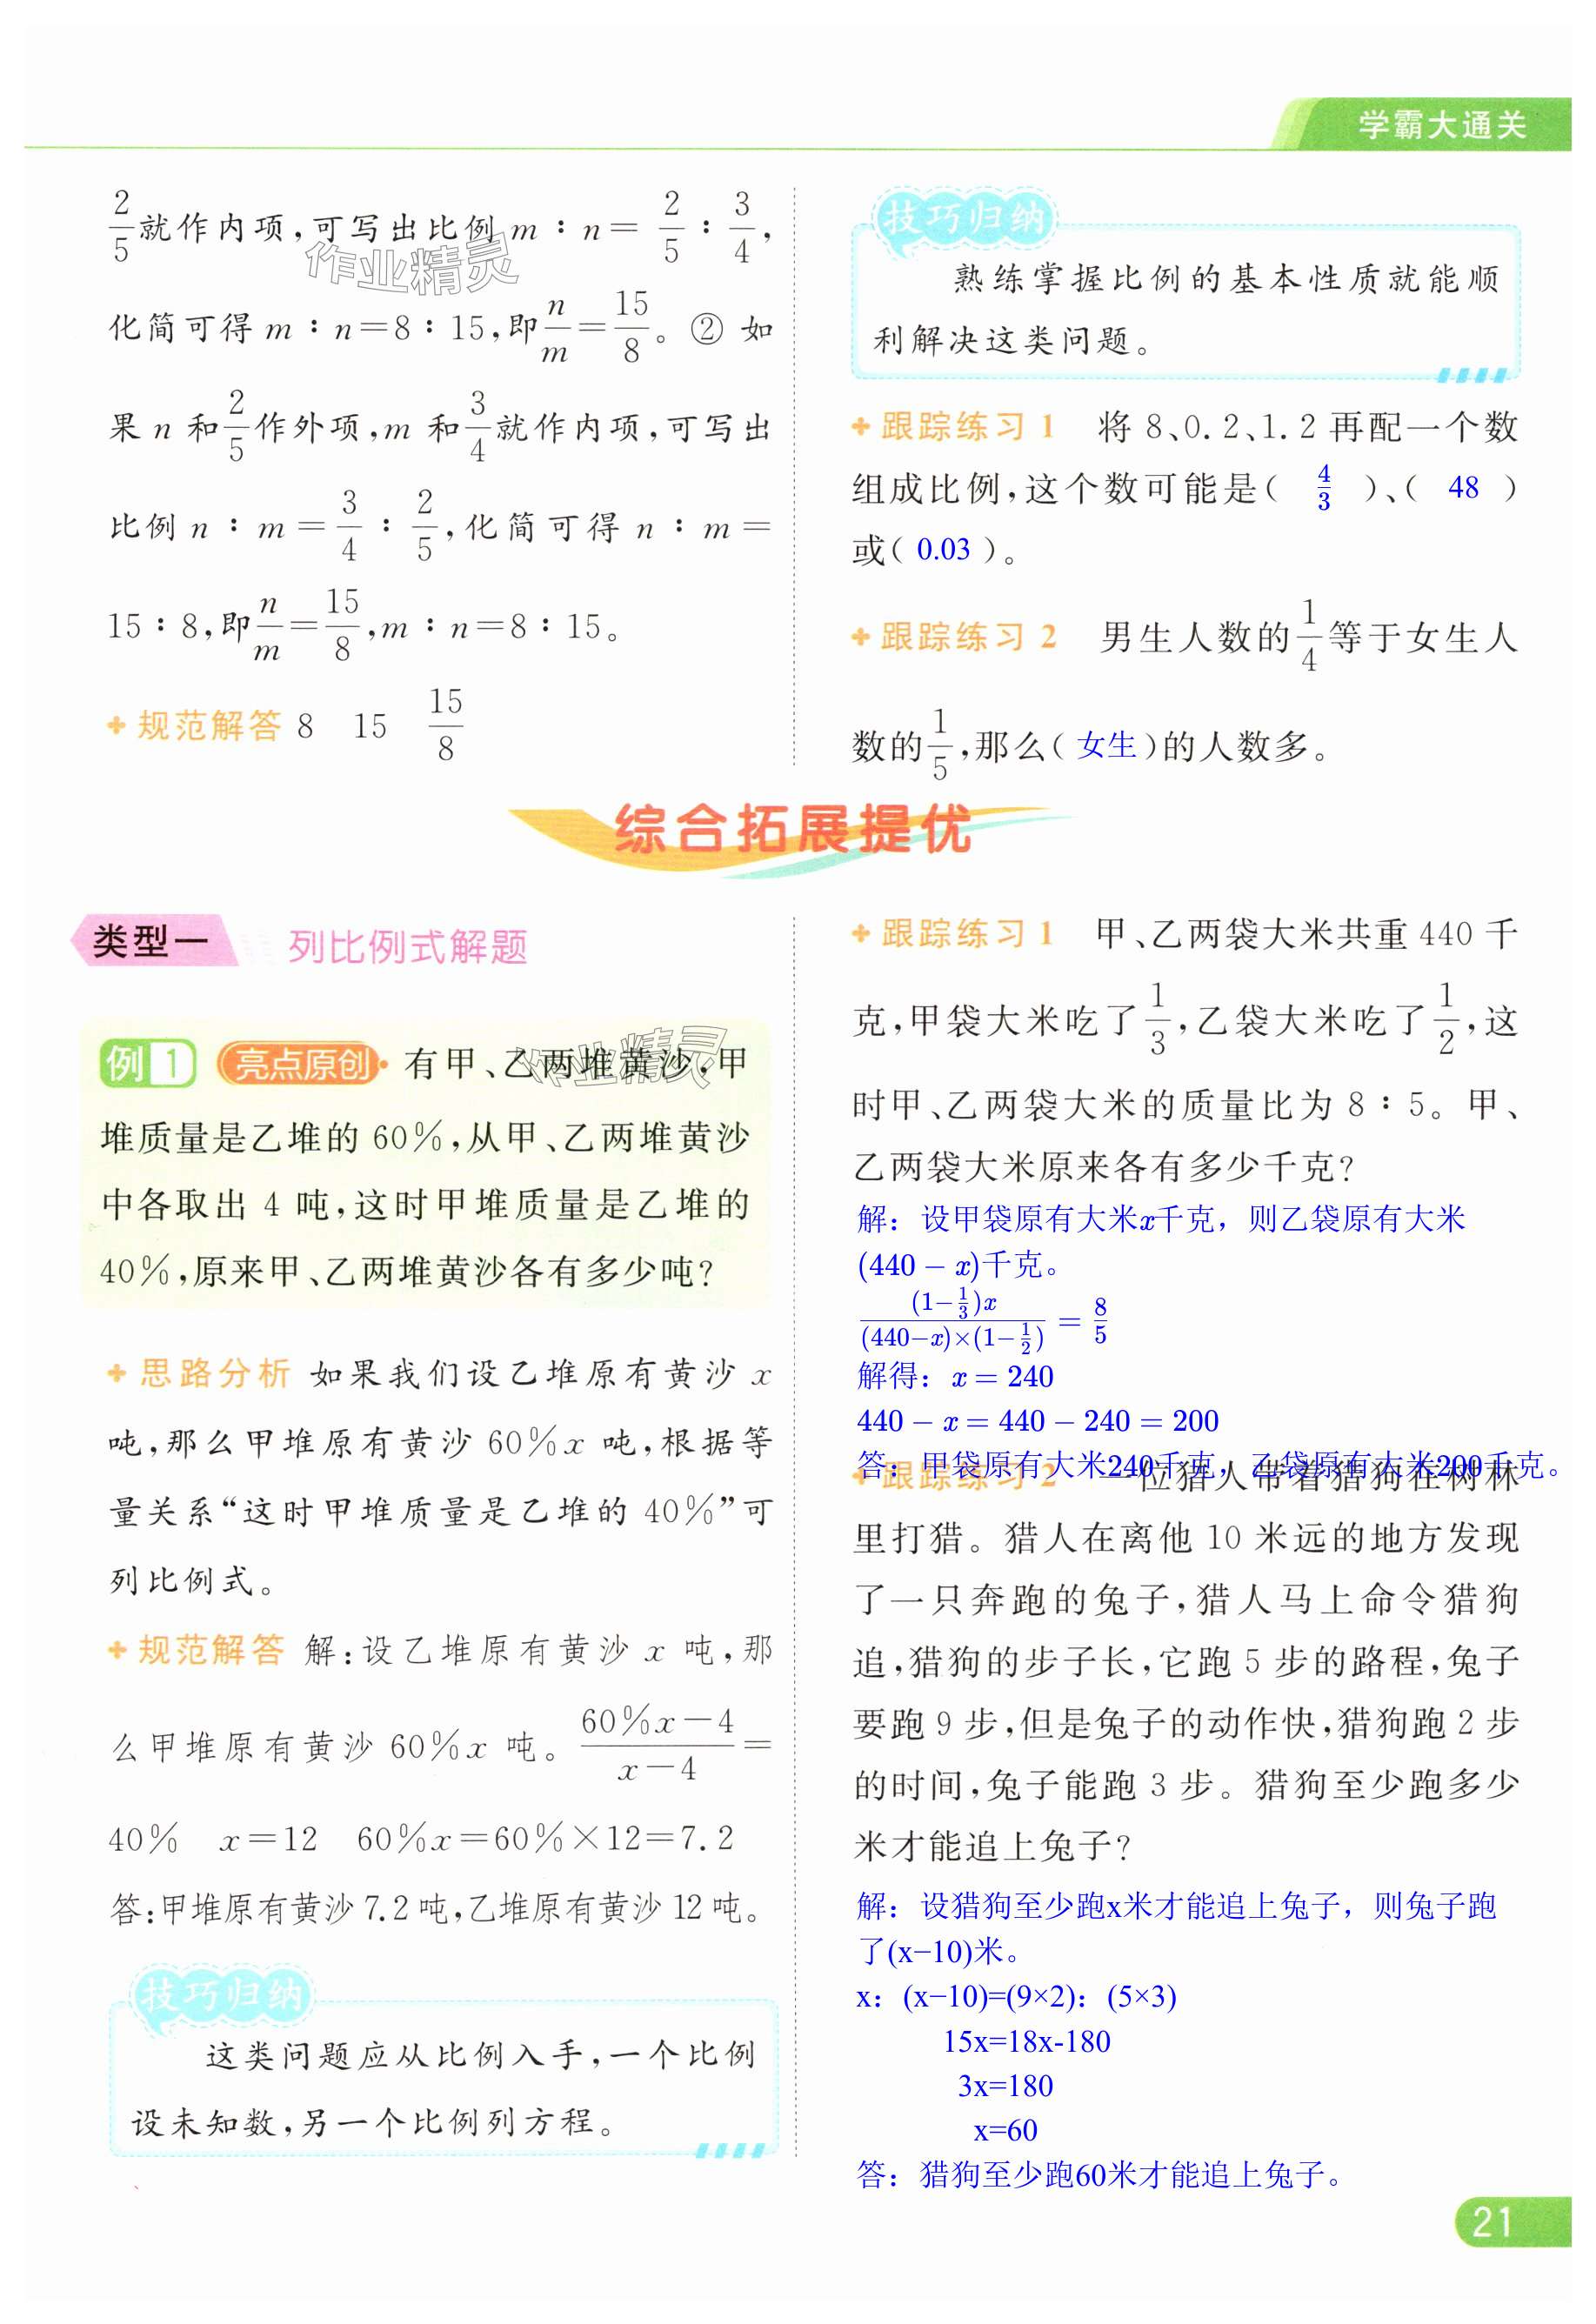 学霸大通关
2/5就作内项,可写出比例 m∶n=2/5∶3/4,
作业精灵
化简可得 m∶n=8∶15,即n/m=15/8。② 如
果 n 和2/5作外项,m 和3/4就作内项,可写出
比例 n∶m=3/4∶2/5,化简可得 n∶m=
15∶8,即n/m=15/8,m∶n=8∶15。
规范解答 8 15 15/8
技巧归纳
熟练掌握比例的基本性质就能顺
利解决这类问题。
跟踪练习 1 将 8、0.2、1.2 再配一个数
组成比例,这个数可能是( 4/3 )、( 48 )
或( 0.03 )。
跟踪练习 2 男生人数的1/4等于女生人
数的1/5,那么( 女生 )的人数多。
综合拓展提优
类型一 列比例式解题
例1 亮点原创 有甲、乙两堆黄沙,甲
作业精灵
堆质量是乙堆的 60%,从甲、乙两堆黄沙
中各取出 4 吨,这时甲堆质量是乙堆的
40%,原来甲、乙两堆黄沙各有多少吨?
思路分析 如果我们设乙堆原有黄沙 x
吨,那么甲堆原有黄沙 60%x 吨,根据等
量关系“这时甲堆质量是乙堆的 40%”可
列比例式。
规范解答 解:设乙堆原有黄沙 x 吨,那
么甲堆原有黄沙 60%x 吨。(60%x-4)/(x-4)=
40% x=12 60%x=60%×12=7.2
答:甲堆原有黄沙 7.2 吨,乙堆原有黄沙 12 吨。
技巧归纳
这类问题应从比例入手,一个比例
设未知数,另一个比例列方程。
跟踪练习 1 甲、乙两袋大米共重 440 千
克,甲袋大米吃了1/3,乙袋大米吃了1/2,这
时甲、乙两袋大米的质量比为 8∶5。甲、
乙两袋大米原来各有多少千克?
解：设甲袋原有大米x千克，则乙袋原有大米
(440 − x)千克。
(1−1/3)x/((440−x)×(1−1/2)) = 8/5
解得：x = 240
440 − x = 440 − 240 = 200
答：甲袋原有大米240千克，乙袋原有大米200千克。
跟踪练习 2 一位猎人带着猎狗在树林
里打猎。猎人在离他 10 米远的地方发现
了一只奔跑的兔子,猎人马上命令猎狗
追,猎狗的步子长,它跑 5 步的路程,兔子
要跑 9 步,但是兔子的动作快,猎狗跑 2 步
的时间,兔子能跑 3 步。猎狗至少跑多少
米才能追上兔子?
解：设猎狗至少跑x米才能追上兔子，则兔子跑
了(x−10)米。
x：(x−10)=(9×2)：(5×3)
15x=18x-180
3x=180
x=60
答：猎狗至少跑60米才能追上兔子。
21